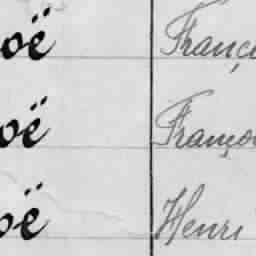 oë Franç
oë Franço
oë Henri